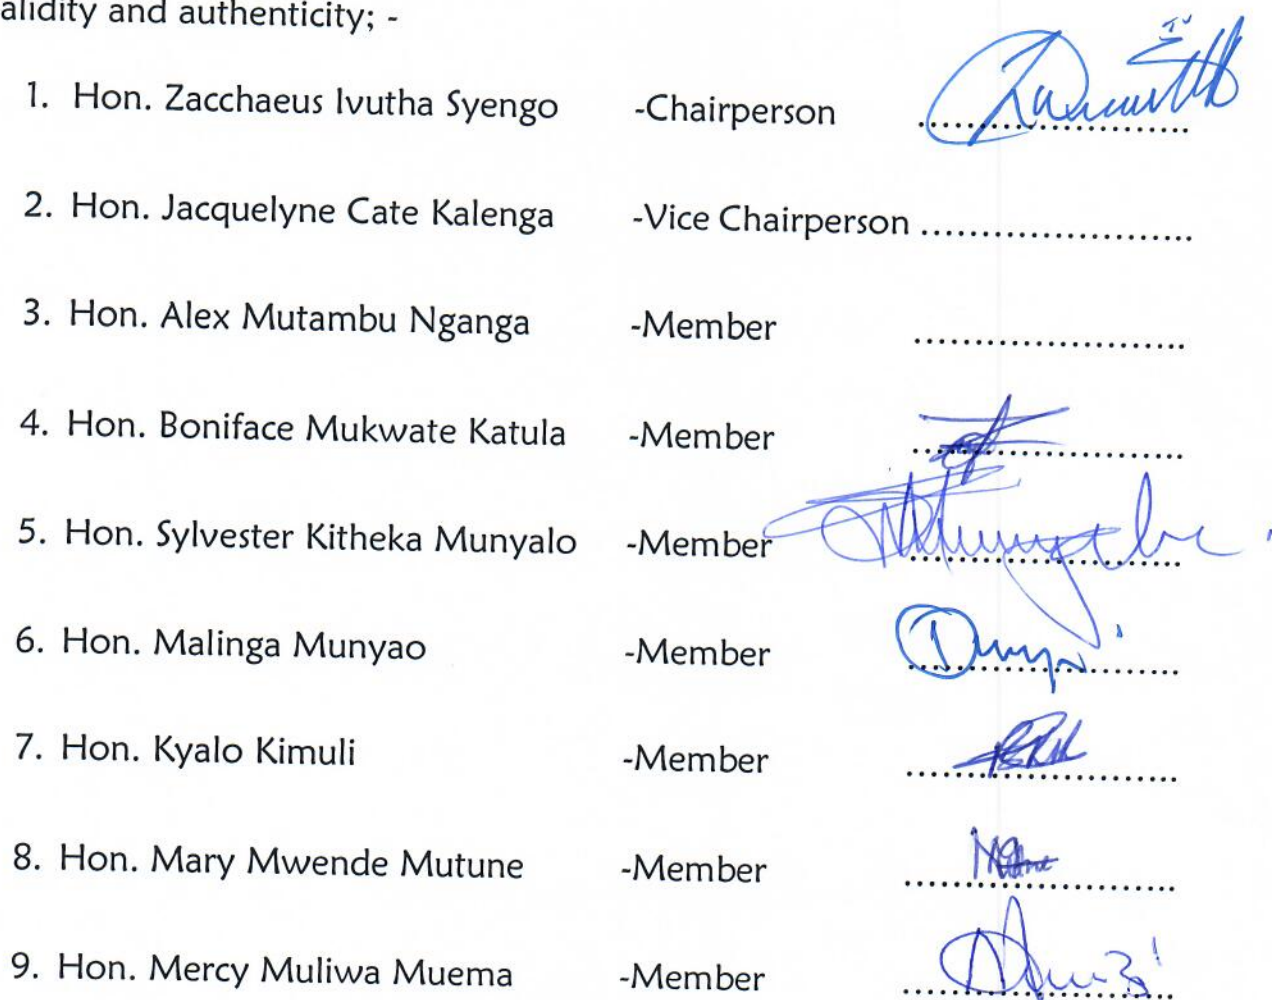 alidity and authenticity; -
1. Hon. Zacchaeus Ivutha Syengo -Chairperson ......................
2. Hon. Jacquelyne Cate Kalenga -Vice Chairperson ......................
3. Hon. Alex Mutambu Nganga -Member ......................
4. Hon. Boniface Mukwate Katula -Member ......................
5. Hon. Sylvester Kitheka Munyalo -Member ......................
6. Hon. Malinga Munyao -Member ......................
7. Hon. Kyalo Kimuli -Member ......................
8. Hon. Mary Mwende Mutune -Member ......................
9. Hon. Mercy Muliwa Muema -Member ......................